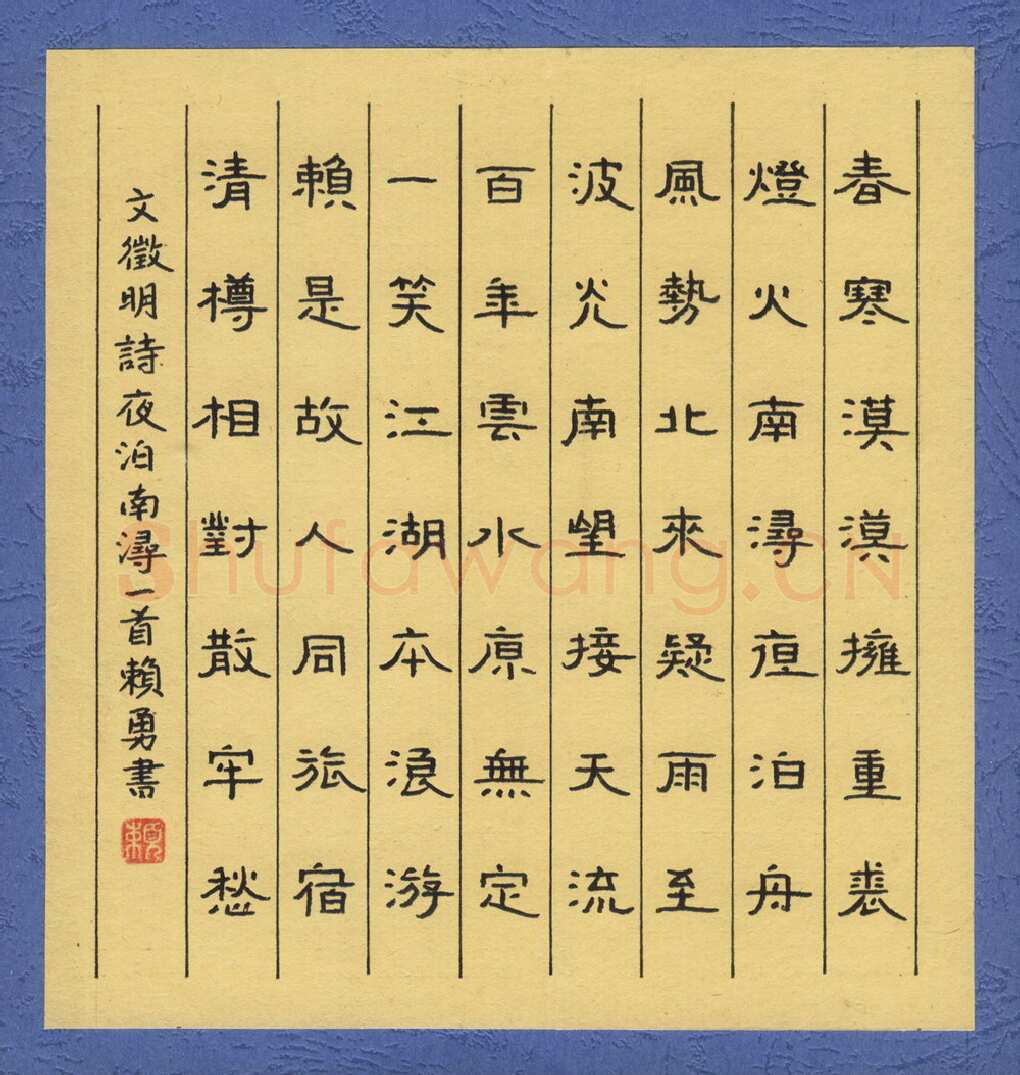 春寒漠漠擁重裘
燈火南潯亱泊舟
風勢北來疑雨至
波光南望接天流
百年雲水原無定
一笑江湖本浪游
賴是故人同旅宿
清樽相對散牢愁
文徵明詩夜泊南潯一首賴勇書
賴
Shufawang.CN